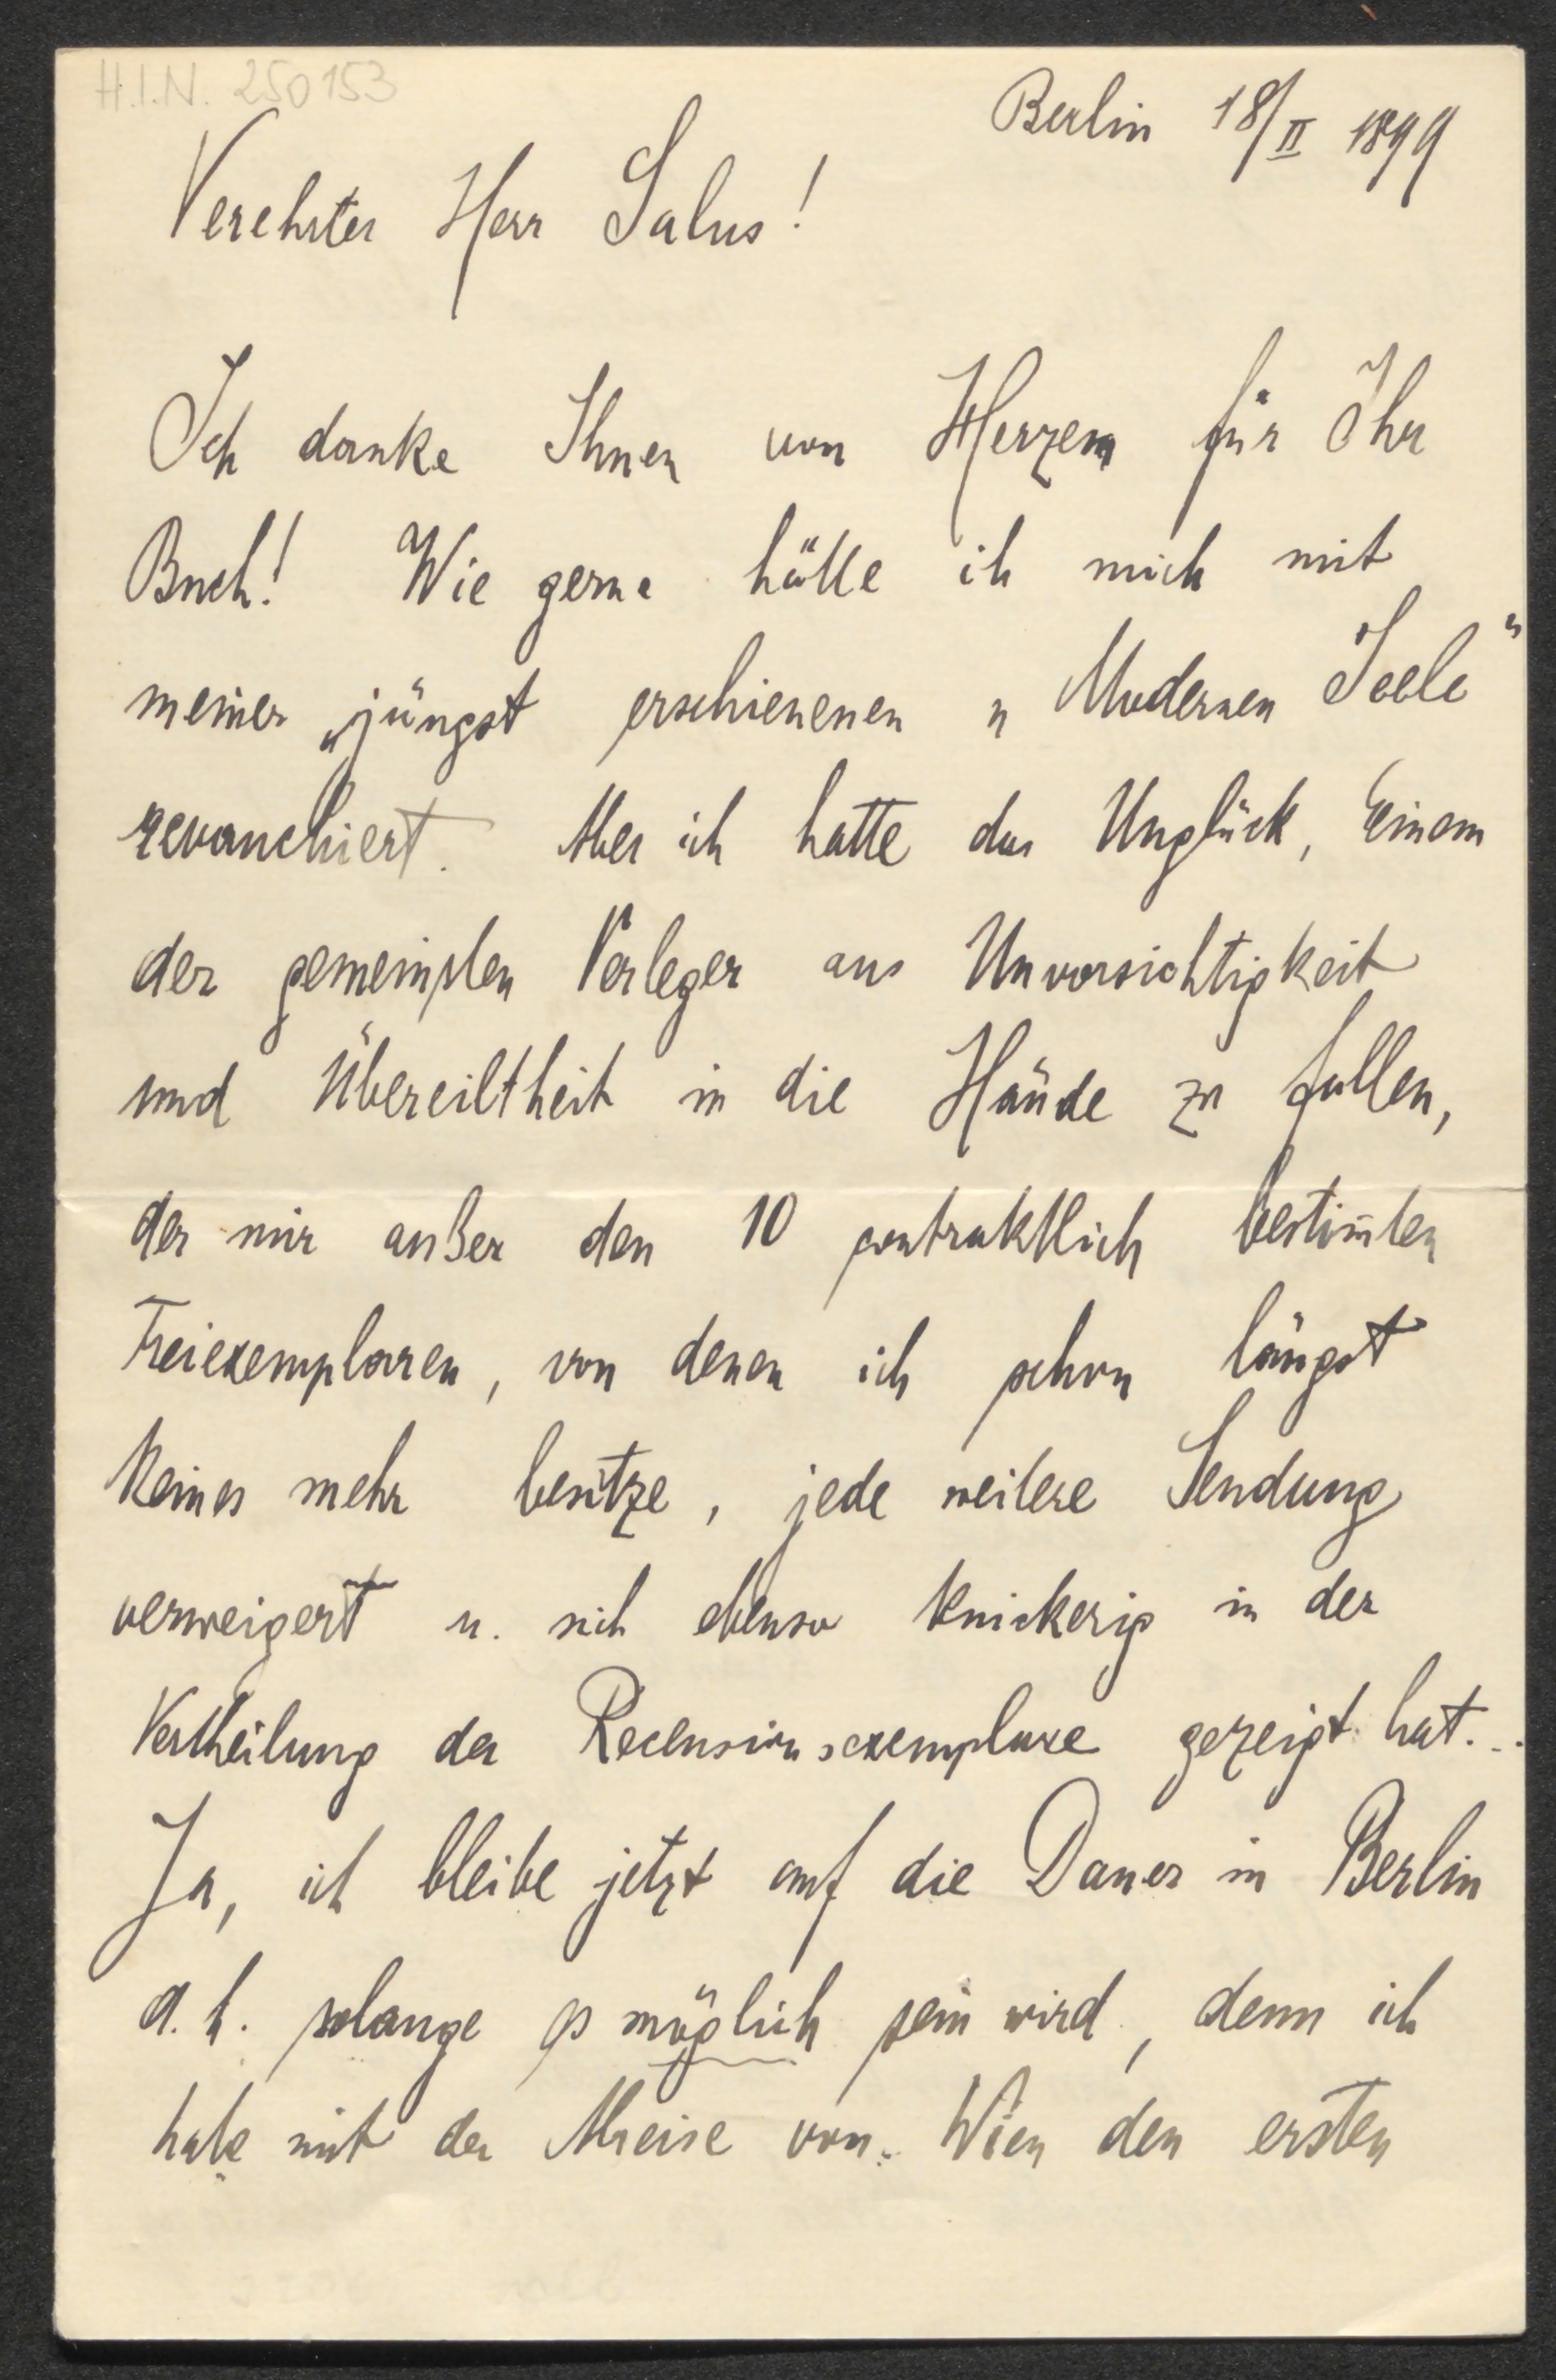 H.I.N. 250153
Berlin 18/II 1899
Verehrter Herr Salus!
Ich danke Ihnen von Herzen für Ihr
Buch! Wie gerne hätte ich mich mit
meiner jüngst erschienenen „Modernen Seele“
revanchiert. Aber ich hatte das Unglück, Einem
der gemeinsten Verleger aus Unvorsichtigkeit
und Übereiltheit in die Hände zu fallen,
der mir außer den 10 contraktlich bestim̄ten
Freiexemplaren, von denen ich schon längst
keines mehr besitze, jede weitere Sendung
verweigert u. sich ebenso knickerig in der
Vertheilung der Recensionsexemplare gezeigt hat...
Ja, ich bleibe jetzt auf die Dauer in Berlin
d. h. solange es möglich sein wird, denn ich
habe mit der Abreise von Wien den ersten